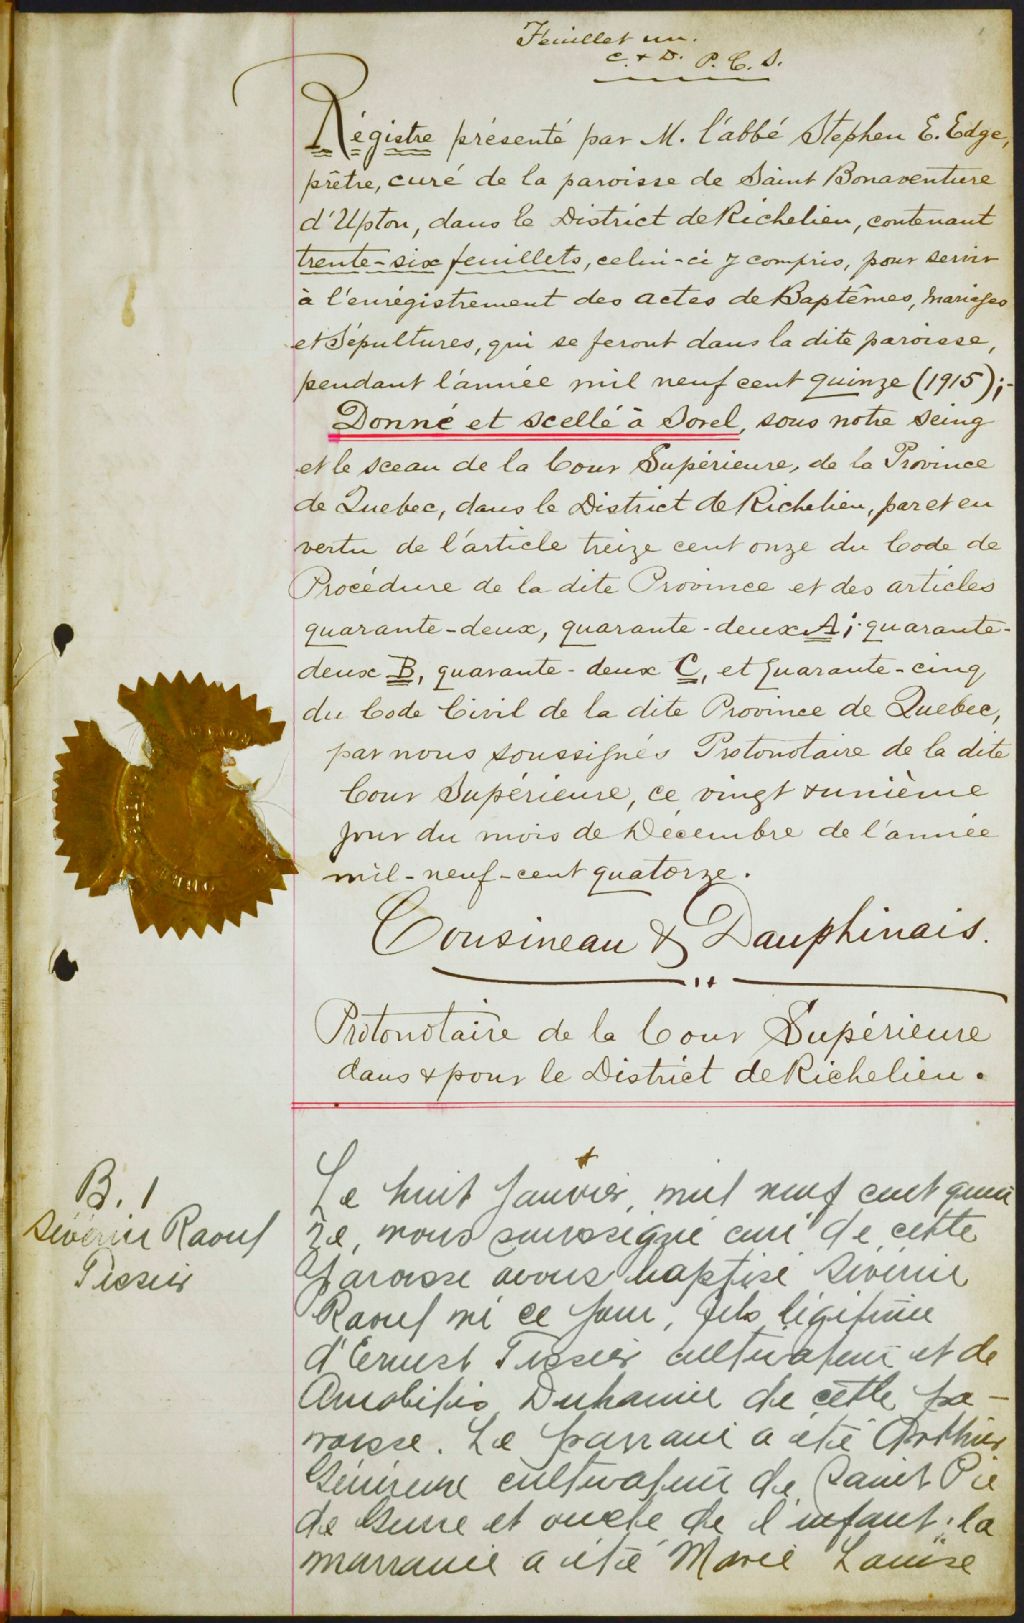 Feuillet un.
C. & D. P. C. S.
Régistre présenté par M. l'abbé Stephen E. Edge,
prêtre, curé de la paroisse de Saint Bonaventure
d'Upton, dans le District de Richelieu, contenant
trente-six feuillets, celui-ci y compris, pour servir
à l'enrégistrement des actes de Baptêmes, Mariages
et Sépultures, qui se feront dans la dite paroisse,
pendant l'année mil neuf cent quinze (1915);-
Donné et scellé à Sorel, sous notre seing
et le sceau de la Cour Supérieure, de la Province
de Quebec, dans le District de Richelieu, par et en
vertu de l'article treize cent onze du Code de
Procédure de la dite Province et des articles
quarante-deux, quarante-deux A; quarante-
deux B, quarante-deux C, et quarante-cinq
du Code Civil de la dite Province de Quebec,
par nous soussignés Protonotaire de la dite
Cour Supérieure, ce vingt & unième
jour du mois de Décembre de l'année
mil-neuf-cent quatorze.
Cousineau & Dauphinais.
Protonotaire de la Cour Supérieure
dans & pour le District de Richelieu.
B. 1
Sévérin Raoul
Tessier
Le huit Janvier, mil neuf cent quin
ze, nous soussigné curé de cette
paroisse avons baptisé Sévérin
Raoul né ce jour, fils légitime
d'Ernest Tessier cultivateur et de
Duhamel de cette pa-
roisse. Le parrain a été Arthur
cultivateur de Saint Pie
de Guire et oncle de l'enfant; la
marraine a été Marie Louise